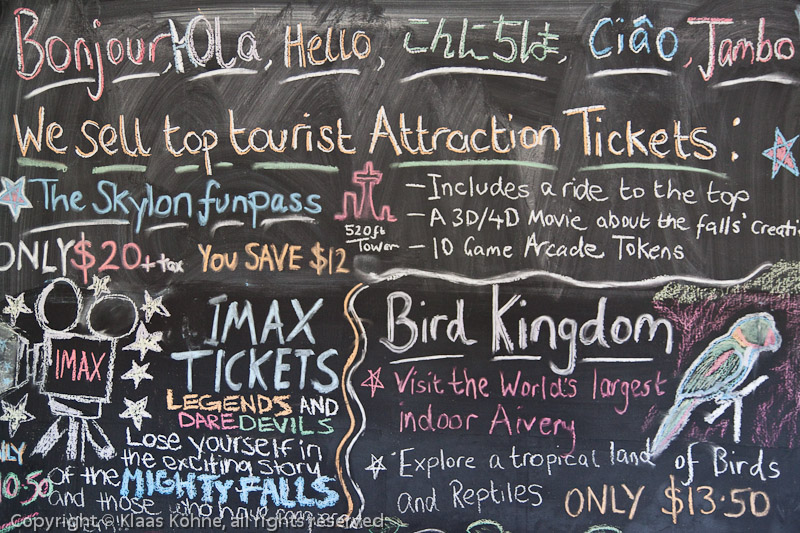 Bonjour, Hola, Hello, こんにちは, Ciâo, Jambo
We sell top tourist Attraction Tickets:
The Skylon funpass
520ft
Tower
ONLY $20 ++tax You SAVE $12
- Includes a ride to the top
- A 3D/4D Movie about the falls' creati
- 10 Game Arcade Tokens
IMAX
IMAX
TICKETS
LEGENDS AND
DAREDEVILS
Lose yourself in
the exciting story
of the MIGHTY FALLS
and those who have
10.50
Bird Kingdom
Visit the World's largest
indoor Aivery
Explore a tropical land of Birds
and Reptiles
ONLY $13.50
Copyright © Klaas Kohne, all rights reserved